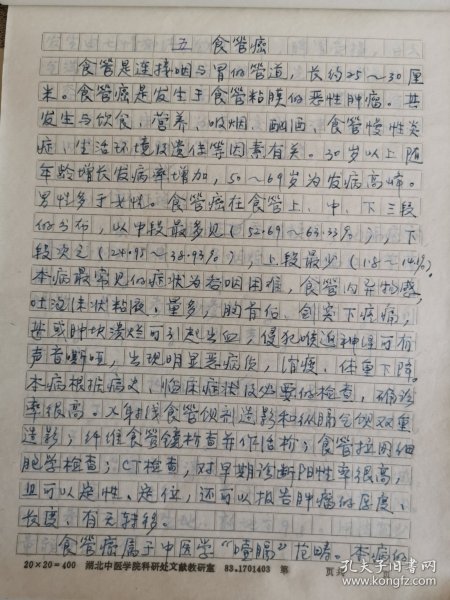 五 食管癌
食管是连接咽与胃的管道，长约25～30厘
米。食管癌是发生于食管粘膜的恶性肿瘤。其
发生与饮食、营养、吸烟、酗酒、食管慢性炎
症、生活环境及遗传等因素有关。30岁以上随
年龄增长发病率增加，50～69岁为发病高峰。
男性多于女性。食管癌在食管上、中、下三段
的分布，以中段最多见（52.69～63.33%），下
段次之（24.95～38.93%），上段最少（1.8～14%）。
本病最常见的症状为吞咽困难，食管内异物感，
吐泡沫状粘液，量多，胸骨后、剑突下疼痛，
或肿块溃烂可引起出血，侵犯喉返神经可有
声音嘶哑，出现明显恶病质，消瘦、体重下降。
本病根据病史、临床症状及必要的检查，确诊
率很高。X射线食管钡剂造影和纵膈气钡双重
造影；纤维食管镜检查并作活检；食管拉网细
胞学检查；CT检查，对早期诊断阳性率很高，
且可以定性、定位，还可以报告肿瘤的厚度、
长度、有无转移。
食管癌属于中医学“噎膈”范畴。本病的
20×20=400 湖北中医学院科研处文献教研室 83.1701403 第 页共
孔夫子旧书网